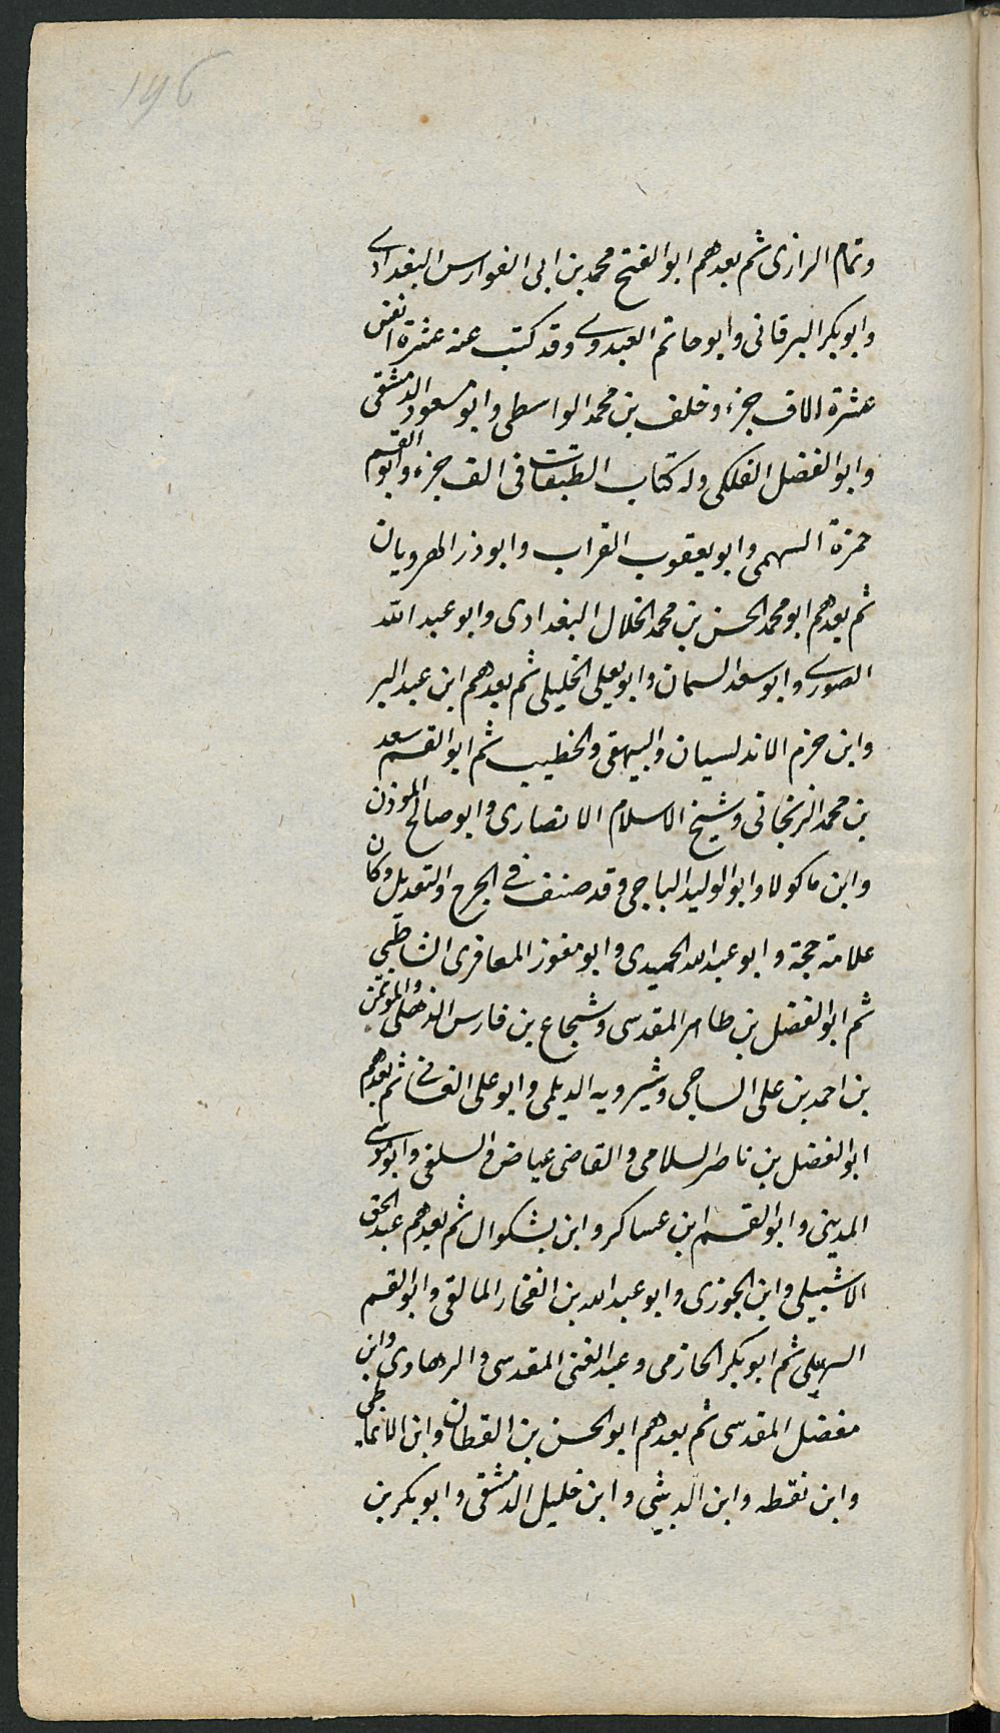 196
وتمام الرازی ثم بعدهم ابو الفتح محمد بن ابی الفوارس البغدادے
وابوبکر البرقانی وابو حاتم العبدوے وقد کتب عنه عشرة انفس
عشرة الاف جزء وخلف بن محمد الواسطی وابو مسعود الدمشقی
وابو الفضل الفلکی وله کتاب الطبقات فی الف جزء وابو القسم
حمزة السهمی وابو یعقوب القراب وابو ذر الهرویان
ثم بعدهم ابو محمد الحسن بن محمد الخلال البغدادی وابو عبد اللّه
الصورے وابو سعد السمان وابو یعلی الخلیلی ثم بعدهم ابن عبد البر
وابن حزم الاندلسیان والبیهقی والخطیب ثم ابو القسم سعد
بن محمد الزنجانی وشیخ الاسلام الانصاری وابو صالح الموذن
وابن ماکولا وابو الولید الباجی وقد صنف فے الجرح والتعدیل وکان
علامة حجة وابو عبد الله الحمیدی وابو مفوز المعافری الشاطبی
ثم ابو الفضل بن طاهر المقدسی وشجاع بن فارس الذهلی والمؤتمن
بن احمد بن علی الساجی وشیرویه الدیلمی وابو علی الغسانی ثم بعدهم
ابو الفضل بن ناصر السلامی والقاضی عیاض والسلفی وابو موسے
المدینی وابو القسم ابن عساکر وابن بشکوال ثم بعدهم عبد الحق
الاشبیلی وابن الجوزی وابو عبد الله بن الفخار المالقی وابو القسم
السهیلی ثم ابو بکر الحازمی وعبد الغنی المقدسی والرهاوی وابن
مفضل المقدسی ثم بعدهم ابو الحسن بن القطان وابن الانماطی
وابن نقطه وابن الدبیثی وابن خلیل الدمشقی وابو بکر بن